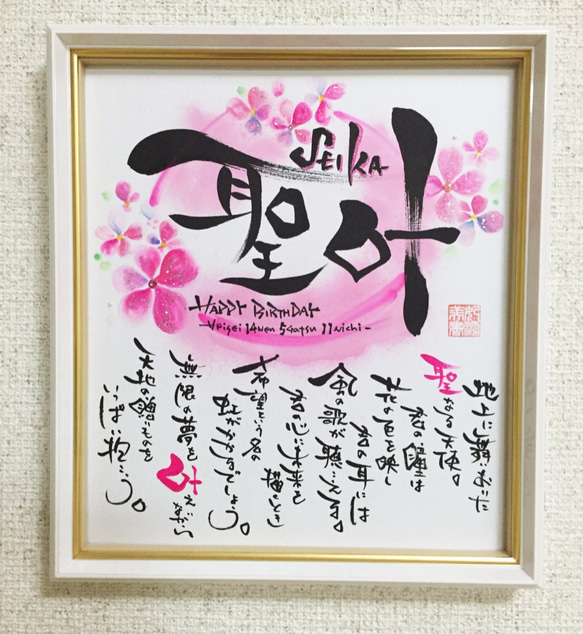 SEIKA
聖叶
HAPPY BIRTHDAY
-Heisei 14nen 5Gatsu 11Nichi-
地上に舞いおりた
聖なる天使。
君の瞳は
花の色を映し
君の耳には
風の歌が聴こえる。
君が心に未来を
描くとき
希望という名の
虹がかかるでしょう。
無限の夢を叶えながら
天地の贈りものを
いっぱい抱こう。